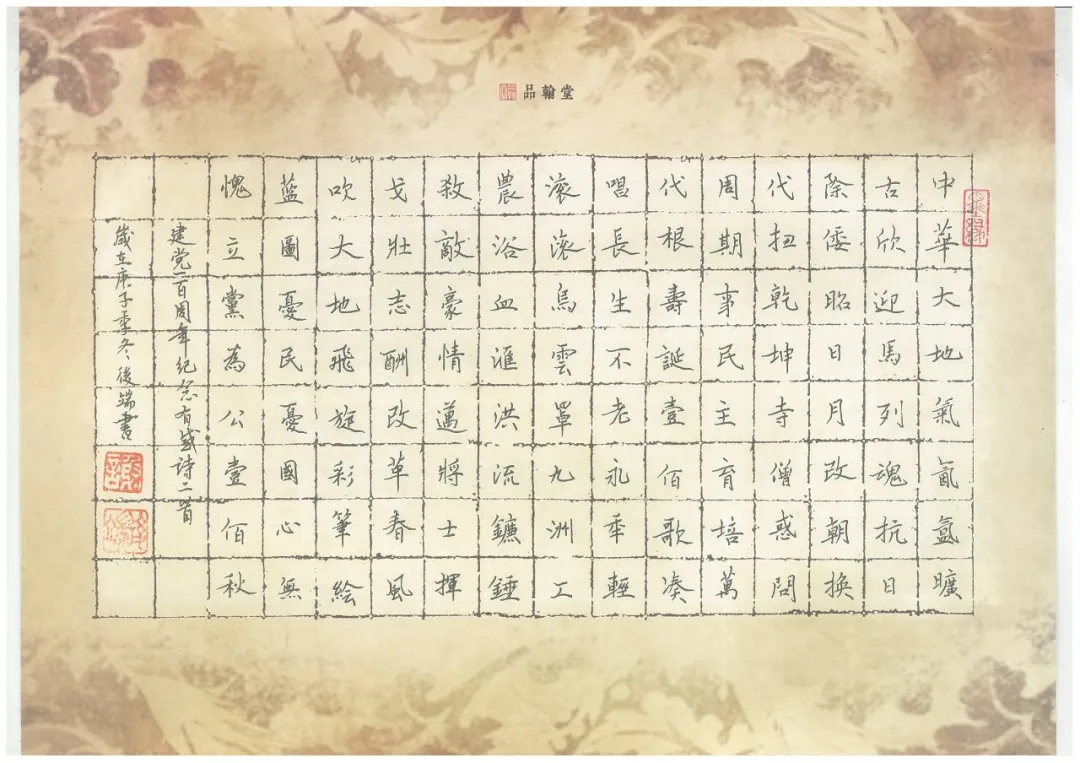 品翰堂
中華大地氣氤氳曠
古欣迎馬列魂抗日
除倭昭日月改朝換
代扭乾坤寺僧惑問
周期事民主育培萬
代根壽誕壹佰歌湊
唱長生不老永年輕
滚滚烏雲罩九洲工
農浴血滙洪流鐮錘
殺敵豪情邁將士揮
戈壯志酬改革春風
吹大地飛旋彩筆絵
蓝圖憂民憂國心無
愧立黨為公壹佰秋
建党一百周年纪念有感詩二首
歲在庚子季冬後端書